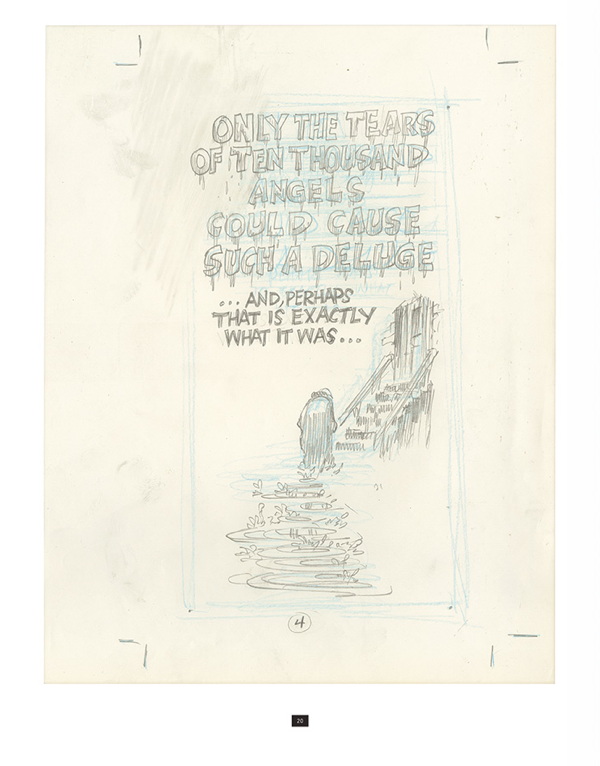 ONLY THE TEARS
OF TEN THOUSAND
ANGELS
COULD CAUSE
SUCH A DELUGE
...AND, PERHAPS
THAT IS EXACTLY
WHAT IT WAS...
4
20